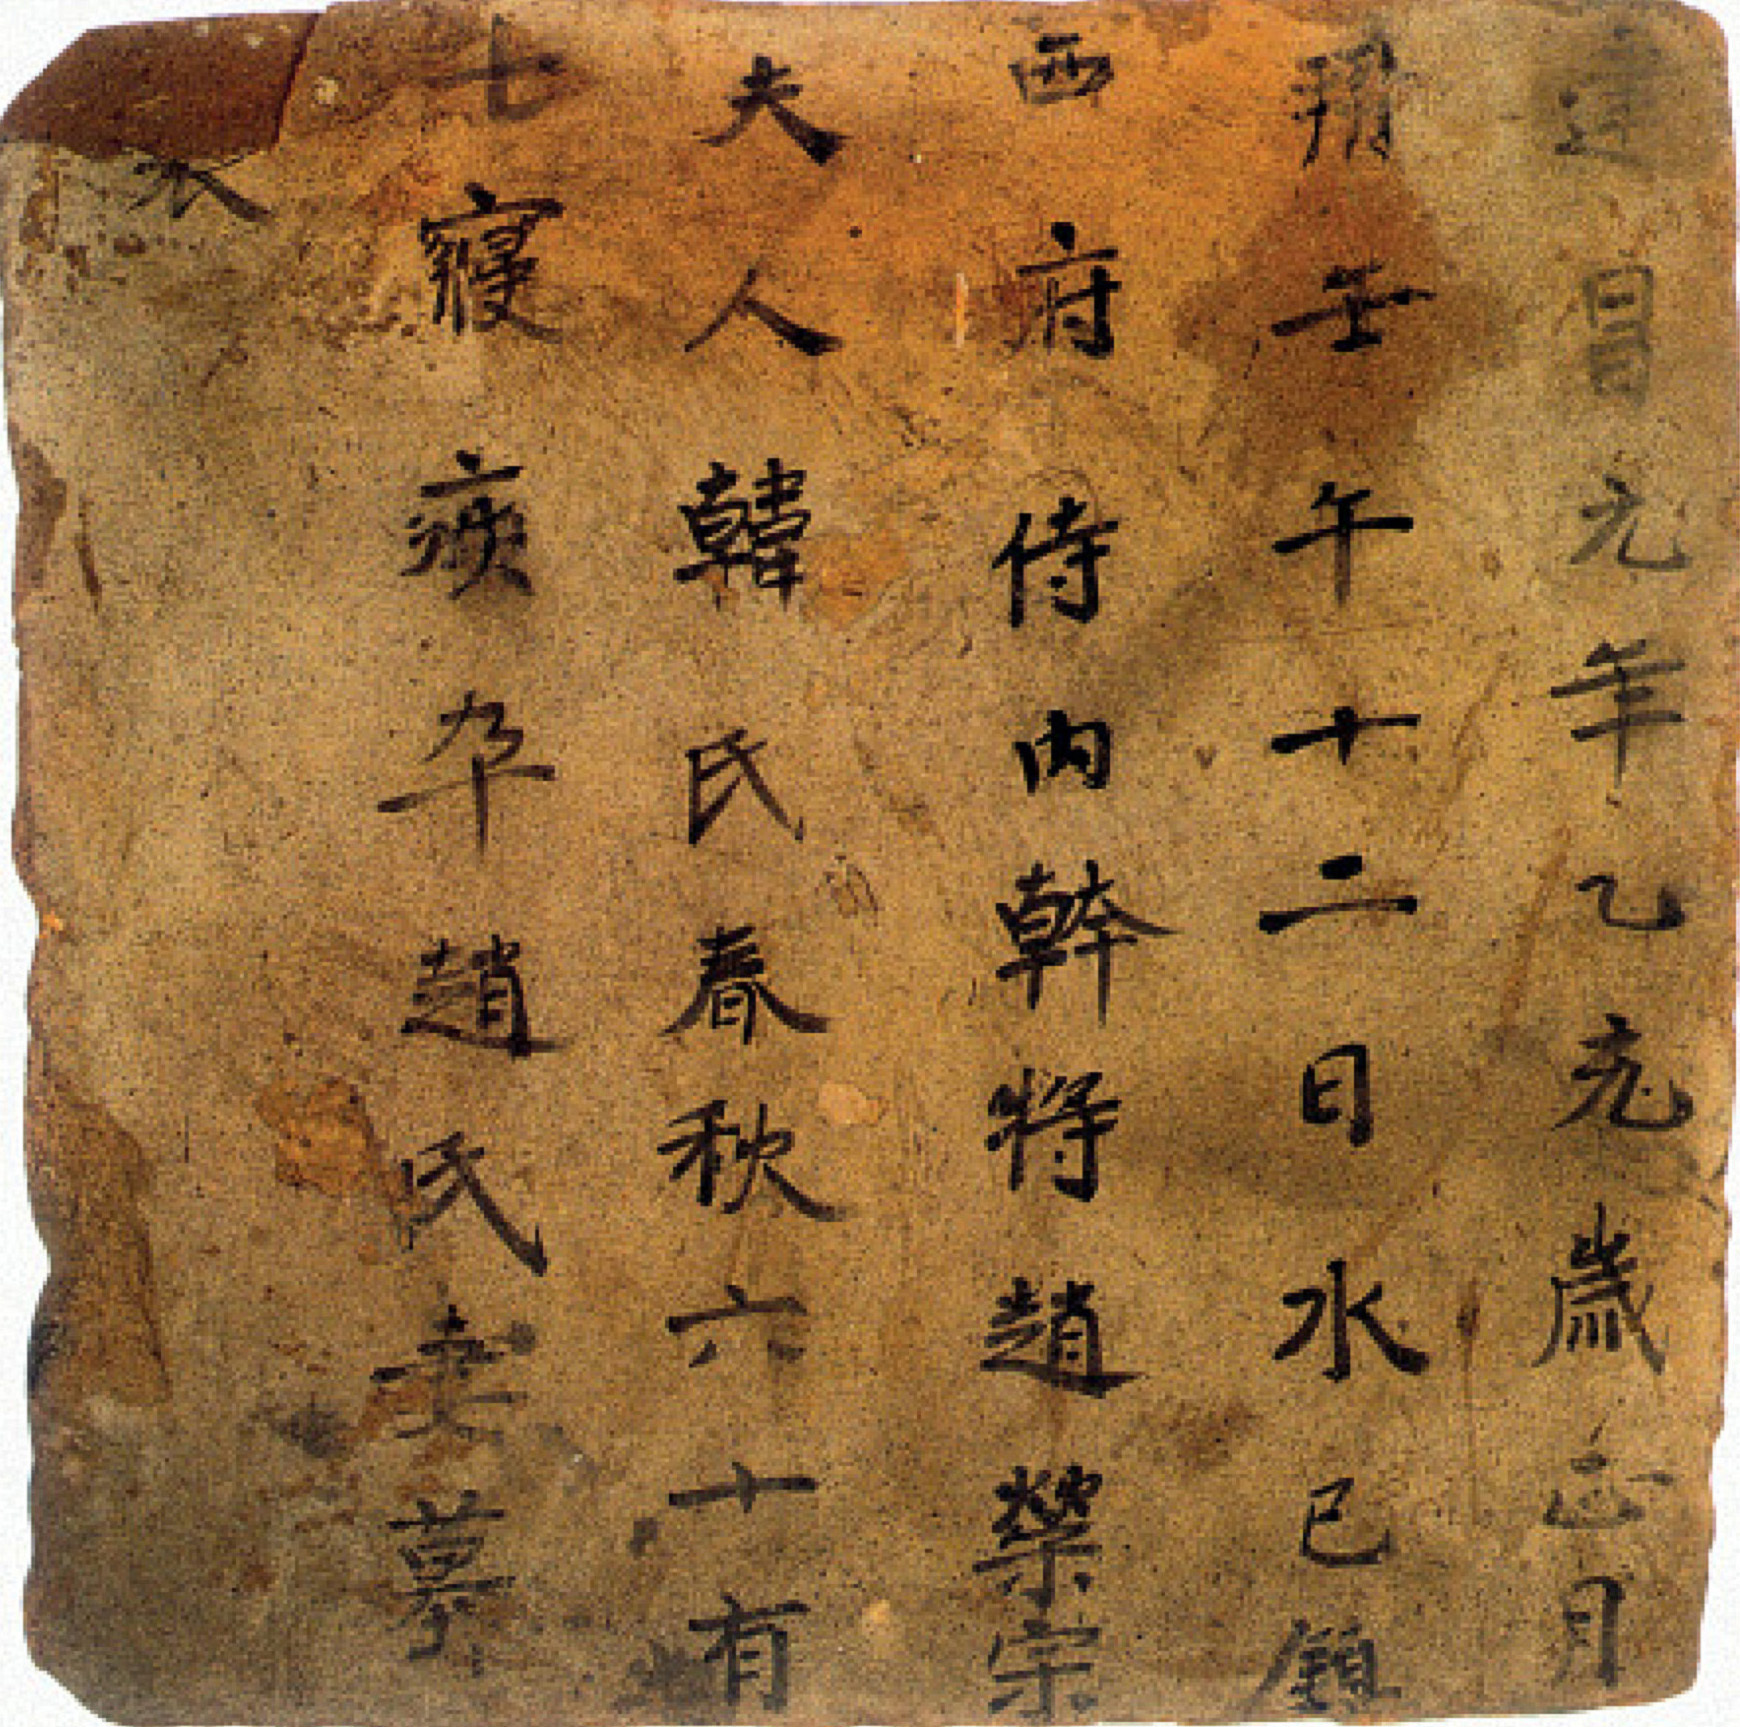 延昌元年乙充歲正月
朔壬午十二日水巳鎮
西府侍内幹將趙榮宗
夫人韓氏春秋六十有
七寢疾卒趙氏妻墓
表